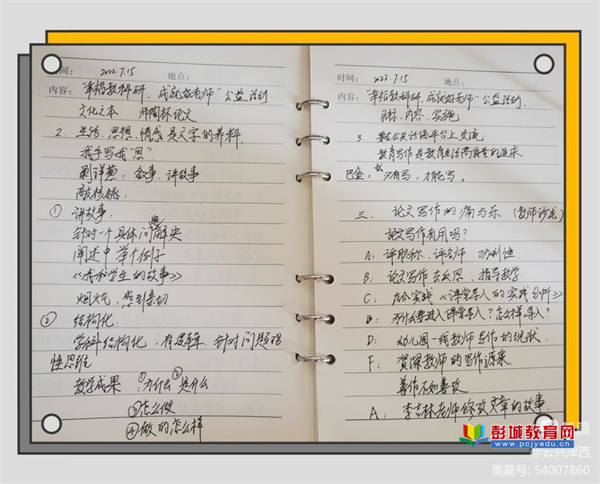 时间： 2022.7.15 地点：
内容："幸福教科研，成就好老师"公益活动
文化文本 师陶杯论文
2. 生活、思想、情感是文字的养料.
我手写我"思"
剥洋葱：叙事、讲故事
敲核桃：
① 讲故事.
针对一个具体问题解决
阐述中举个例子
《我和学生的故事》
烟火气，感到亲切
② 结构化.
学科结构化，有逻辑、针对问题
性思维
教学成果 ①为什么 ②是什么
③怎么做
④做的怎么样
时间： 2022.7.15 地点：
内容："幸福教科研，成就好老师"公益活动.
目标、内容、实施
3. 公共话语平台上交流
教育写作是教育生活高质量的追求
巴金：只有写，才能写。
三. 论文写作的痛与乐（教师沙龙）
论文写作有用吗？
A：评职称、评名师 功利性
B：论文写作去反思、指导教学.
C：《课堂导入的实践分析》
为什么要进入课堂导入？怎么样导入？
D：幼儿园一线教师写作的现状.
F：资深教师的写作源来
善作不如善改
A：李吉林老师修改文章的故事.
彭城教育网
www.pcjyedu.cn
@云兴津西
美篇号: 54007860